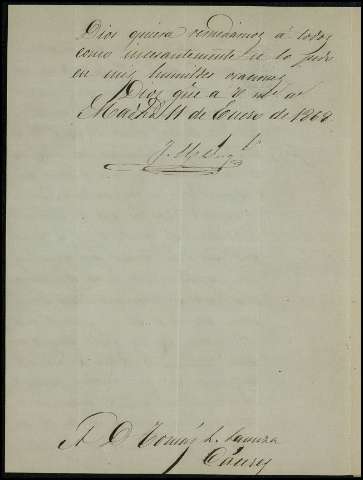 Dios quiera remediarnos á todos
como incesantemente se lo pido
en mis humildes oraciones
Dios gúe a V. ms. as.
Madrid 11 de Enero de 1868.
A D. Tomás L.
Cáceres